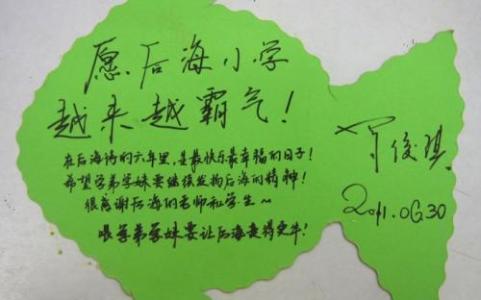 愿后海小学
越来越霸气！
在后海待的六年里，是最快乐最幸福的日子！
希望学弟学妹要继续发扬后海的精神！
很感谢后海的老师和学生～
喂学弟学妹要让后海变得更牛！
俊琪
2011.06.30